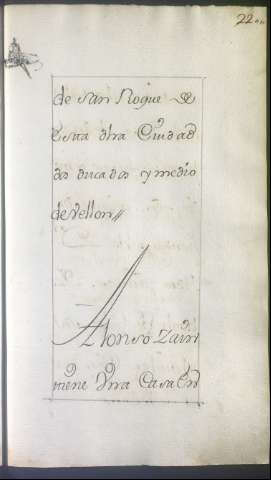 22
de san Roque de
esta dha Ciudad
dos ducados y medio
de Vellon//
Alonso
tiene Una Casa En